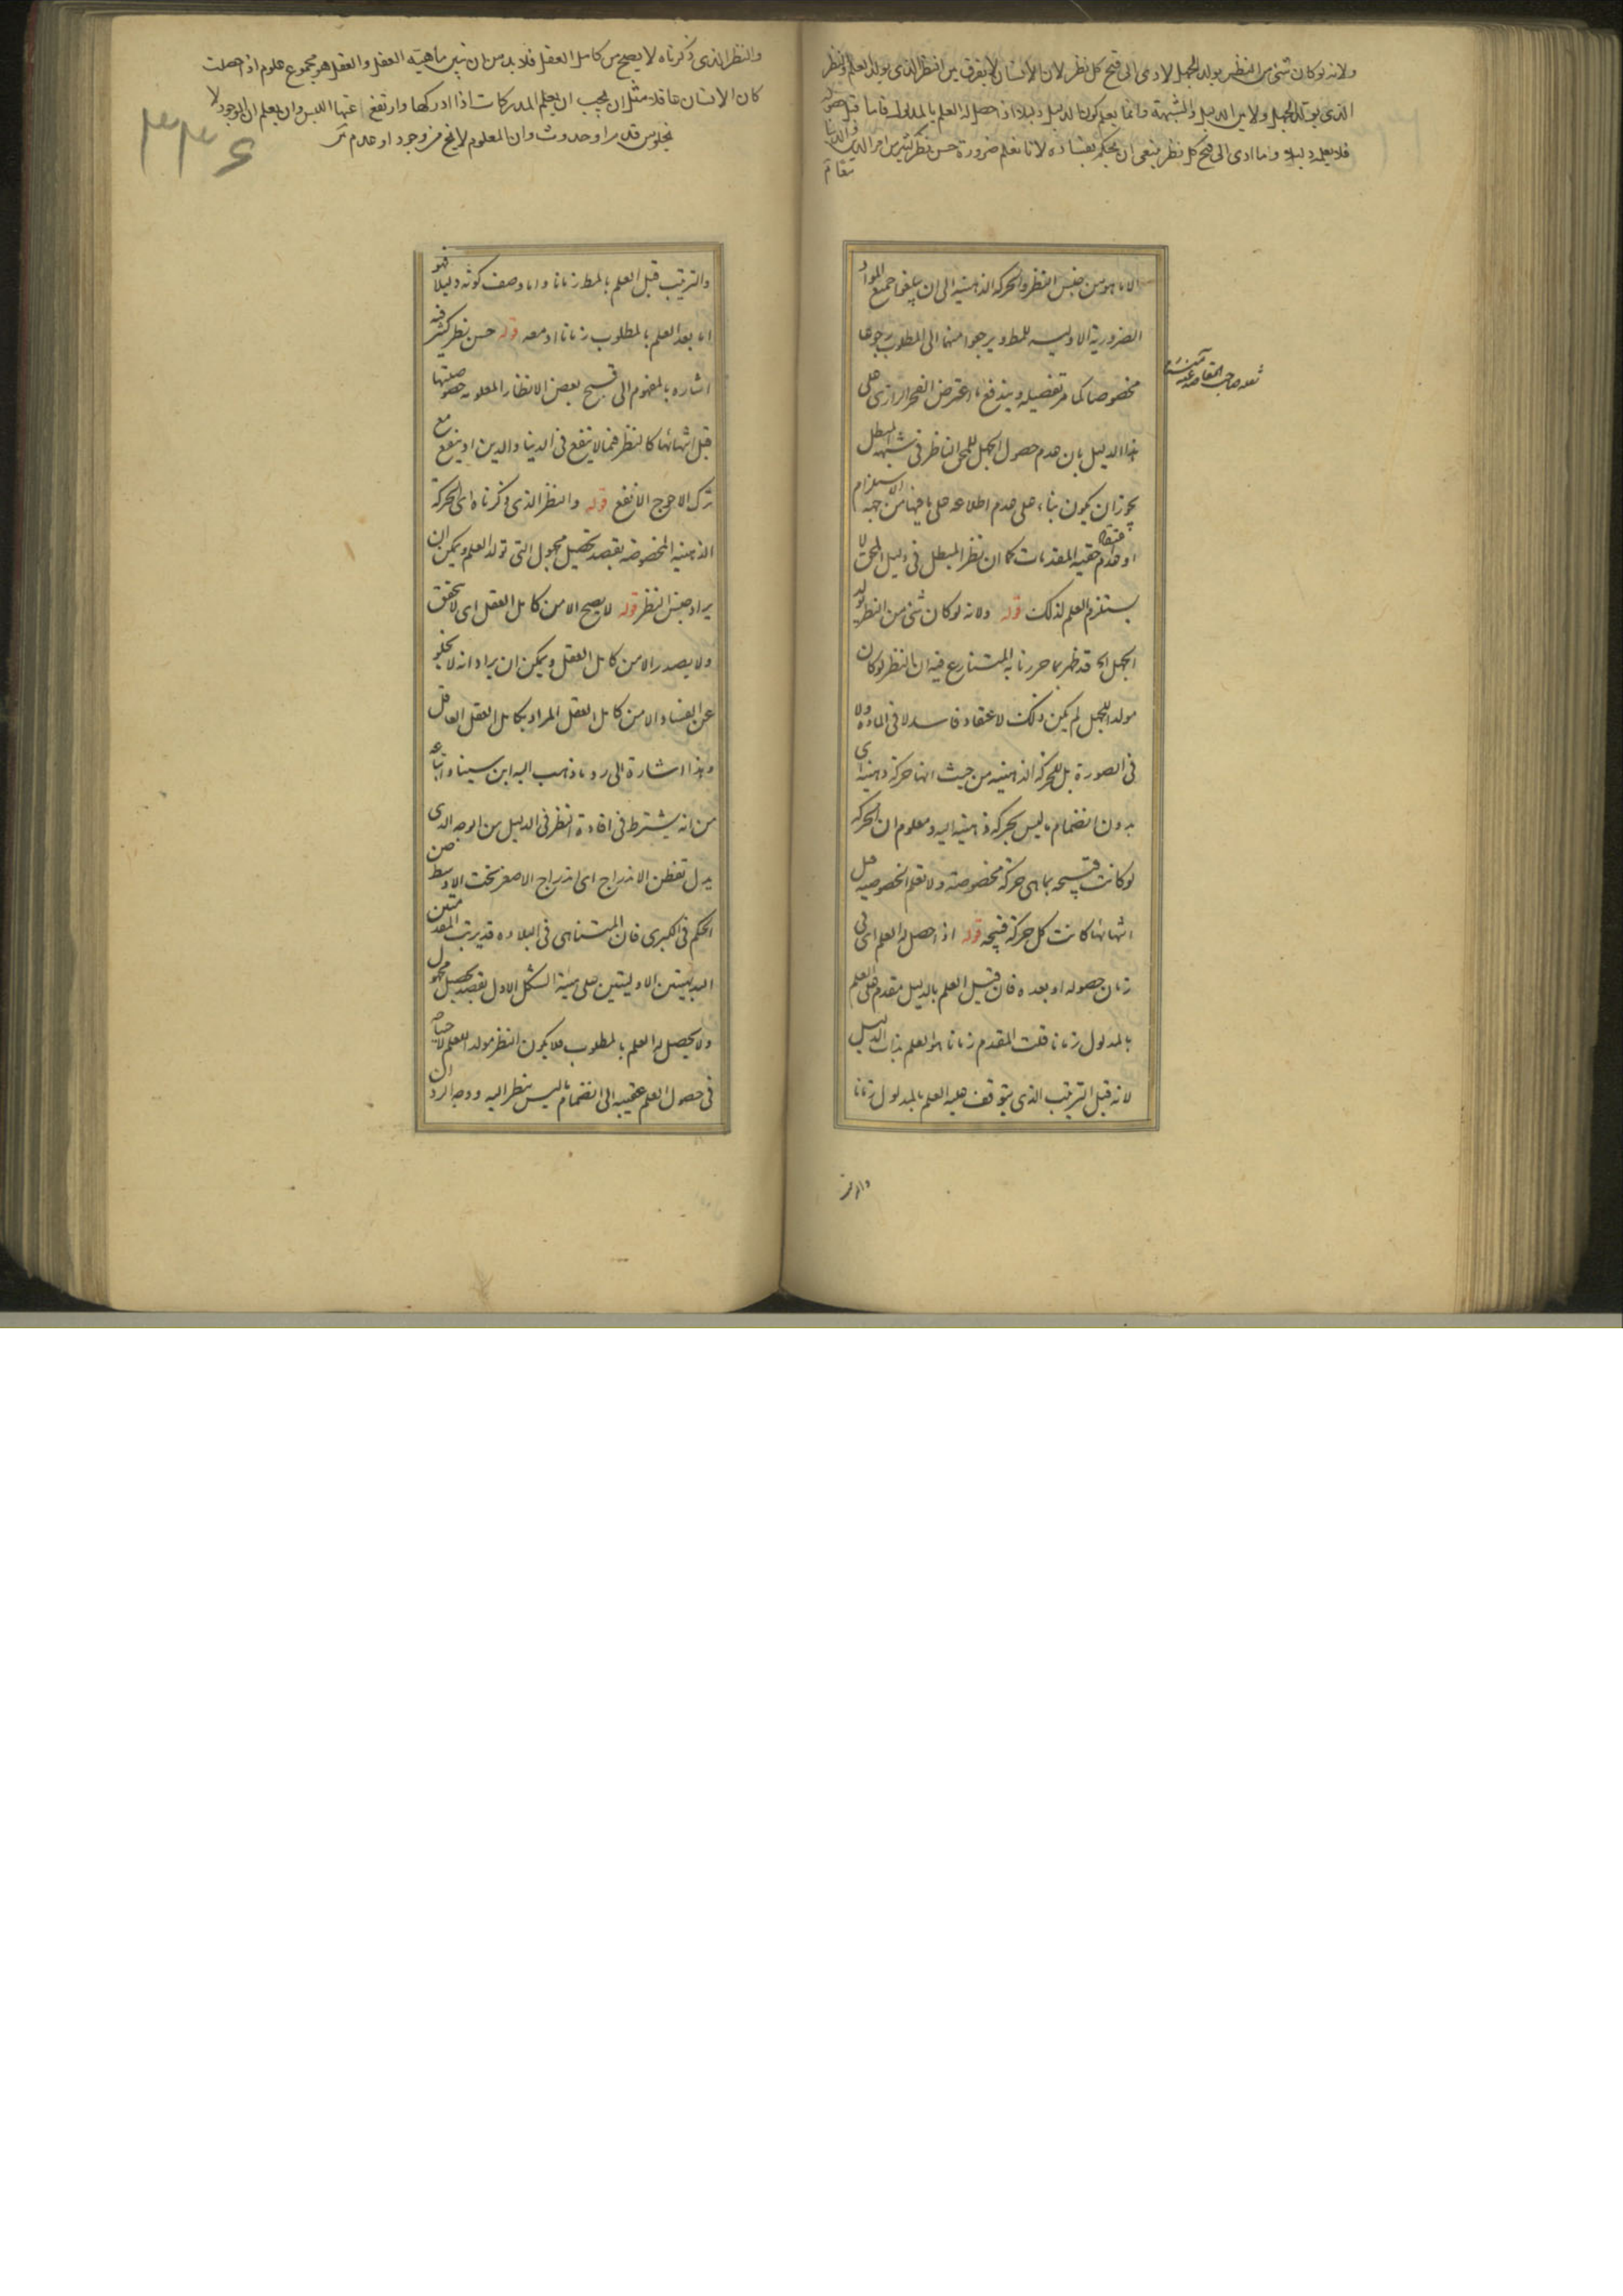 ولانه لو كان شئ من النظر يولد الجهل لادى الى قبح كل نظر لان الانسان لا يفرق بين النظر الذى يولد العلم والنظر
الذى يولد الجهل ولا بين الدليل والشبهة وانما يعلم كون الدليل دليلا اذا حصل له العلم بالمدلول فاما قبل حصوله
فلا يعلمه دليلا وما ادى الى قبح كل نظر ينبغى ان يحكم بفساده لانا نعلم ضرورة حسن نظر كثير من امر الدين والدنيا
الا ما هو من جنس النظر والحركة الذهنية الى ان يبلغوا جميع المواد
الضرورية الاولية للمط ويرجعوا منها الى المطلوب رجوعا
مخصوصا كما مر تفصيله ويندفع ما اعترض الفخر الرازى على
هذا الدليل بان عدم حصول الجهل للمحق الناظر فى شبهة المبطل
يجوز ان يكون بناء على عدم اطلاعه على ما فيها من جهة الاستلزام
او عدم اعتقاد حقية المقدمات كما ان نظر المبطل فى دليل المحق لا
يستلزم العلم لذلك قوله ولانه لو كان شئ من النظر يولد
الجهل الخ قد ظهر بما حررنا به المتنازع فيه ان النظر لو كان
مولدا للجهل لم يكن ذلك لاعتقاد فاسد لا فى المادة ولا
فى الصورة بل للحركة الذهنية من حيث انها حركة ذهنية اى
بدون انضمام ما ليس بحركة ذهنية اليه ومعلوم ان الحركة
لو كانت قبيحة بما هى حركة مخصوصة ولا تعلم الخصوصية قبل
انتهائها كانت كل حركة قبيحة قوله اذا حصل له العلم اى فى
زمان حصوله او بعده فان قيل العلم بالدليل مقدم على العلم
بالمدلول زمانا قلت المقدم زمانا هو العلم بذات الدليل
لانه قبل الترتيب الذى يتوقف عليه العلم بالمدلول زمانا
والنظر الذى ذكرناه لا يصح من كامل العقل فلا بد من ان نبين ماهية العقل والعقل هو مجموع علوم اذا حصلت
كان الانسان عاقلا مثل ان يجب ان يعلم المدركات اذا ادركها وارتفع عنها اللبس وان يعلم ان الموجود لا
يخلو من قدم او حدوث وان المعلوم لا يخ من وجود او عدم
٣٣٤
والترتيب قبل العلم بالمط زمانا واما وصف كونه دليلا فهو
اما بعد العلم بالمطلوب زمانا او معه قوله حسن نظر كثير فيه
اشاره بالمفهوم الى قبح بعض الانظار المعلومة خصوصيتها
قبل انتهائها كالنظر فيما لا ينفع فى الدنيا والدين او ينفع مع
ترك الاحوج الانفع قوله والنظر الذى ذكرناه اى الحركة
الذهنية المخصوصة بقصد تحصيل مجهول التى تولد العلم ويمكن ان
يراد جنس النظر قوله لا يصح الا من كامل العقل اى لا يتحقق
ولا يصدر الا من كامل العقل ويمكن ان يراد انه لا يخلو
عن الفساد الا من كامل العقل المراد بكامل العقل العاقل
وهذا اشارة الى رد ما ذهب اليه ابن سينا واتباعه
من انه يشترط فى افادة النظر فى الدليل من الوجه الذى
يدل تفطن الاندراج اى اندراج الاصغر تحت الاوسط من
الحكم فى الكبرى فان المتناهى فى البلادة قد يرتب المقدمتين
البديهيتين الاوليتين على هيئة الشكل الاول بقصد تحصيل مجهول
ولا يحصل له العلم بالمطلوب فلا يكون النظر مولدا للعلم لاحتياجه
فى حصول العلم عقيبه الى انضمام ما ليس بنظر اليه ووجه الرد ان